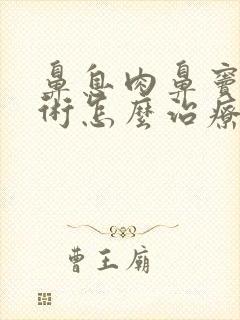 鼻息肉鼻竇
術怎麼治療
曹王廟